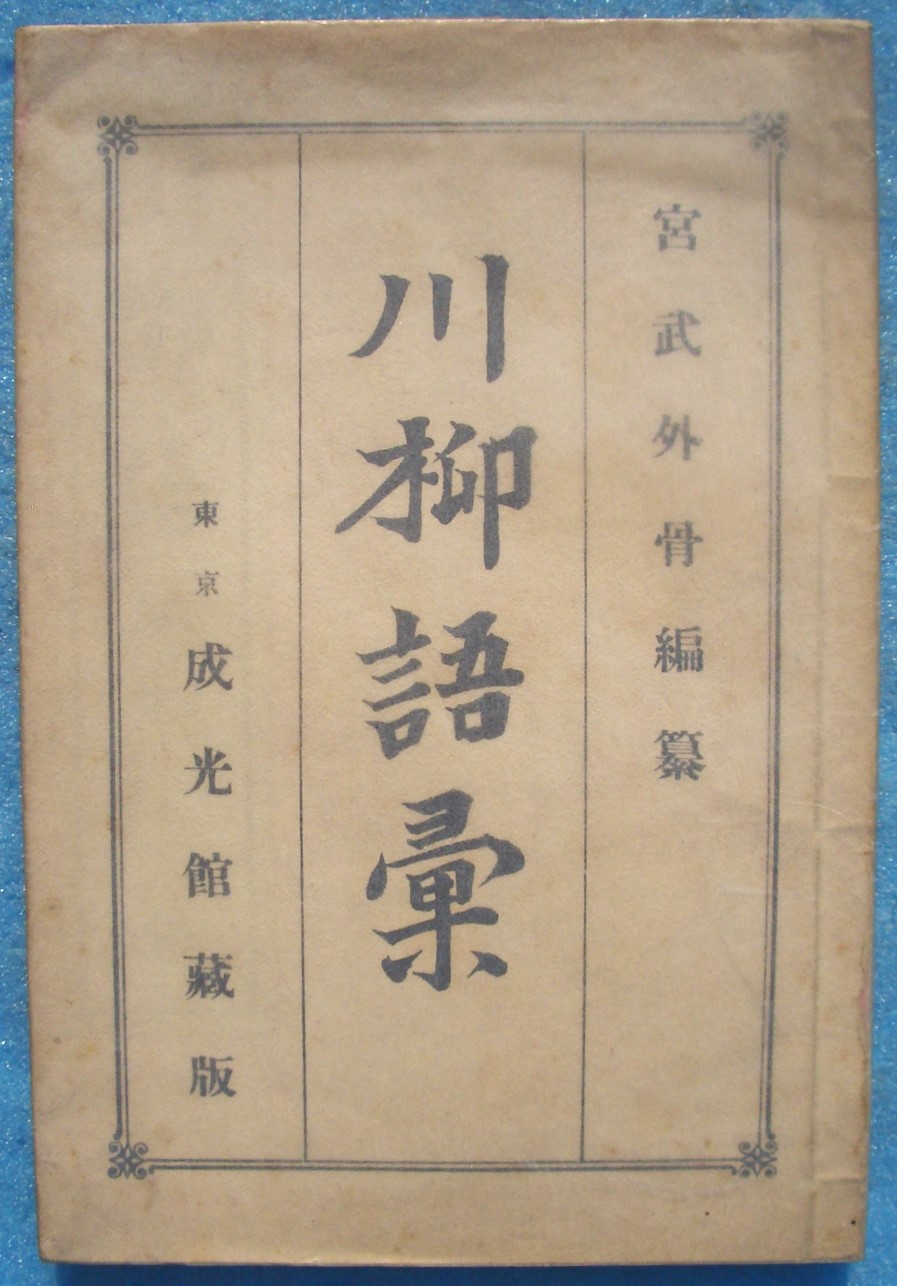 宮武外骨編纂
川柳語彙
東京成光館藏版